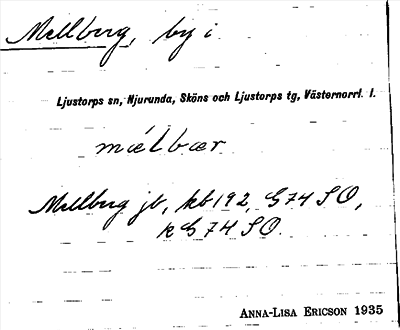 Mellberg, by i
Ljustorps sn, Njurunda, Sköns och Ljustorps tg, Västernorrl. l.
mælbær
Mellberg jb, kb192, G74 SO,
RG 74 SO.
ANNA-LISA ERICSON 1935